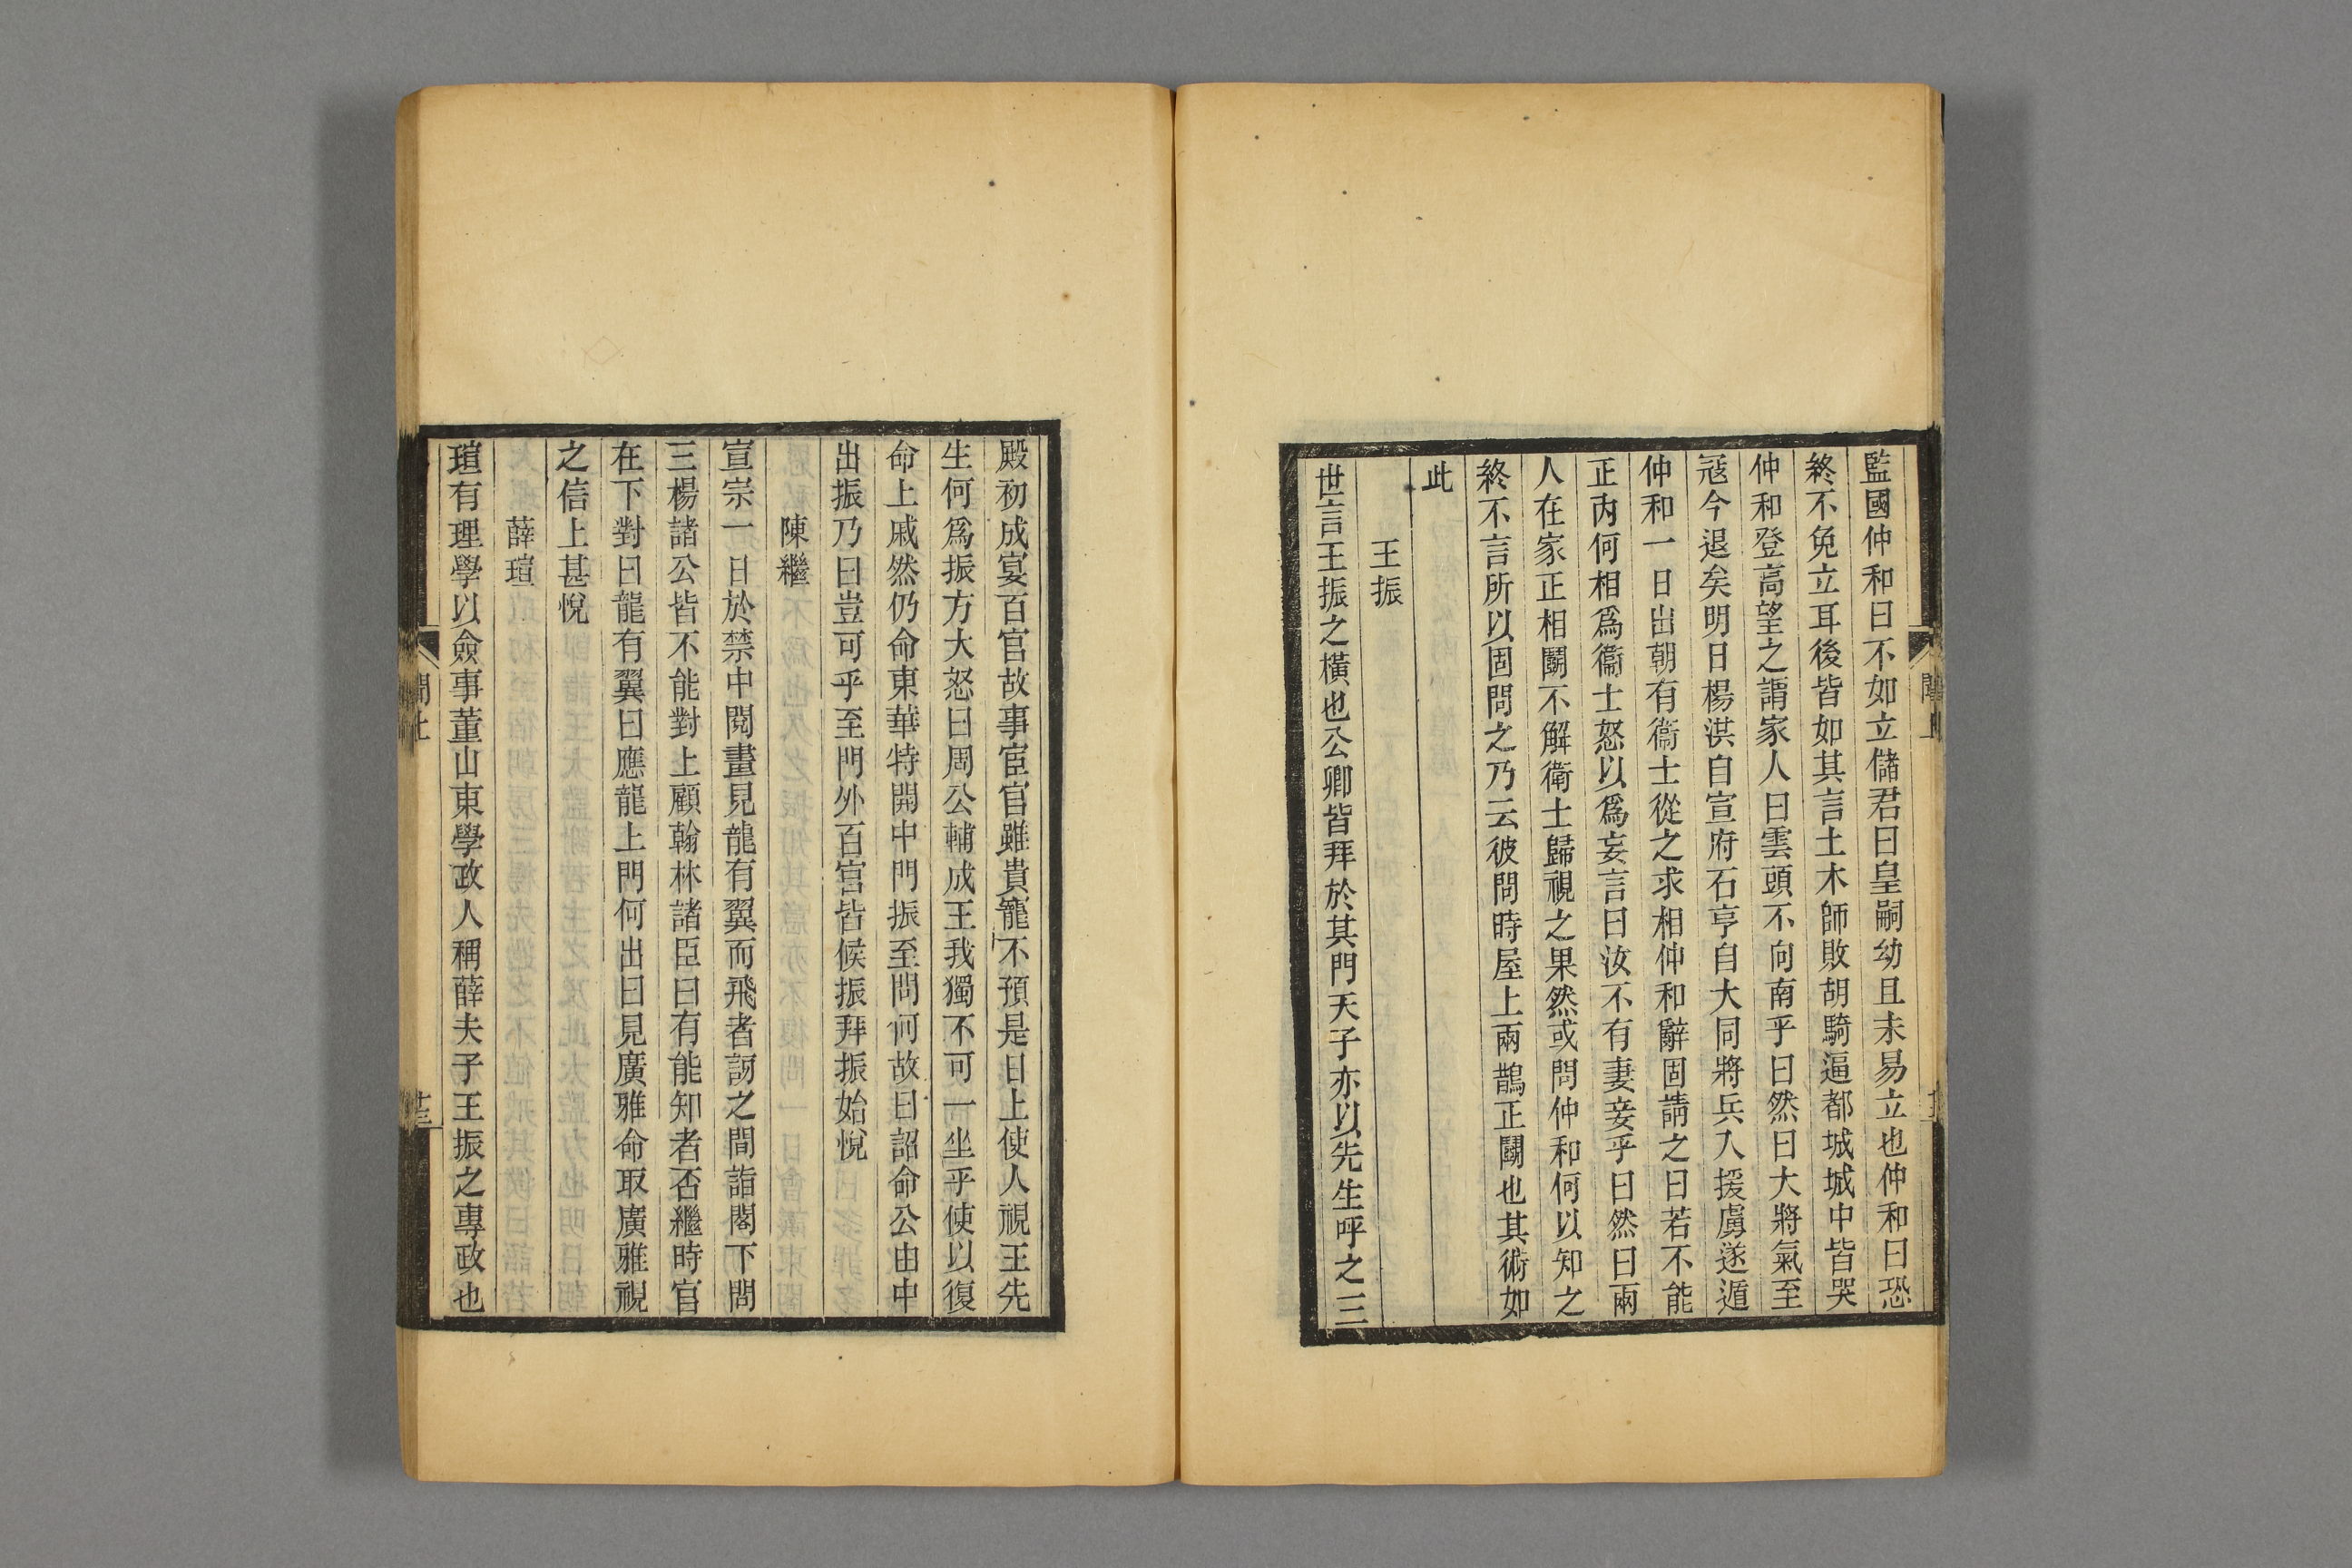 監國仲和曰不如立儲君曰皇嗣幼且未易立也仲和曰恐
終不免立耳後皆如其言土木師敗胡騎逼都城城中皆哭
仲和登高望之謂家人曰雲頭不向南乎曰然曰大將氣至
冦今退矣明日楊洪自宣府石亨自大同將兵入援虜遂遁
仲和一日出朝有衞士從之求相仲和辭固請之曰若不能
正内何相爲衞士怒以爲妄言曰汝不有妻妾乎曰然曰兩
人在家正相鬭不解衛士歸視之果然或問仲和何以知之
終不言所以固問之乃云彼問時屋上兩鵲正鬭也其術如
此
王振
世言王振之橫也公卿皆拜於其門天子亦以先生呼之三
殿初成宴百官故事宦官雖貴寵不預是日上使人視王先
生何爲振方大怒曰周公輔成王我獨不可一坐乎使以復
命上戚然仍命東華特開中門振至問何故曰詔命公由中
出振乃曰豈可乎至門外百官皆候振拜振始悅
陳繼
宣宗一日於禁中閱畫見龍有翼而飛者訝之間詣閣下問
三楊諸公皆不能對上顧翰林諸臣曰有能知者否繼時官
在下對曰龍有翼曰應龍上問何出曰見廣雅命取廣雅視
之信上甚悅
薛瑄
瑄有理學以僉事董山東學政人稱薛夫子王振之專政也
聞上